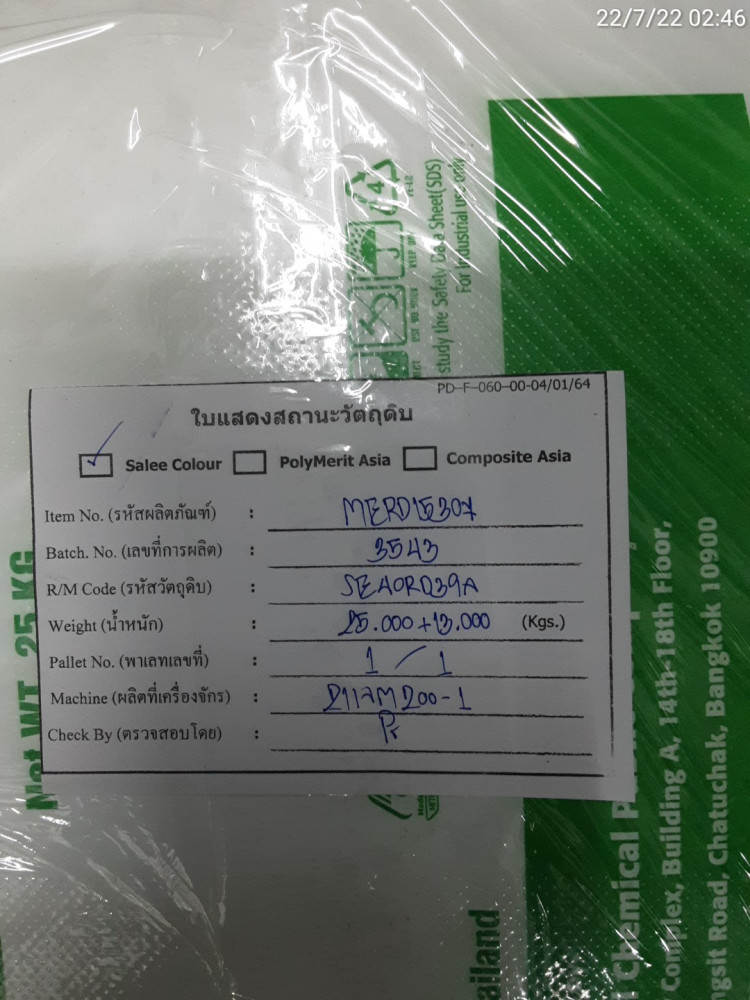 22/7/22 02:46
study the Safety Data Sheet(SDS)
For Industrial use only
PD-F-060-00-04/01/64
ใบแสดงสถานะวัตถุดิบ
Salee Colour PolyMerit Asia Composite Asia
Item No. (รหัสผลิตภัณฑ์) : MERD15307
Batch. No. (เลขที่การผลิต) : 3543
R/M Code (รหัสวัตถุดิบ) : SE40RD39A
Weight (น้ำหนัก) : 25.000+13.000 (Kgs.)
Pallet No. (พาเลทเลขที่) : 1 / 1
Machine (ผลิตที่เครื่องจักร) : 200-1
Check By (ตรวจสอบโดย) :
Net WT. 25 KG
ailand
Chemical
Complex, Building A, 14th-18th Floor,
ngsit Road, Chatuchak, Bangkok 10900